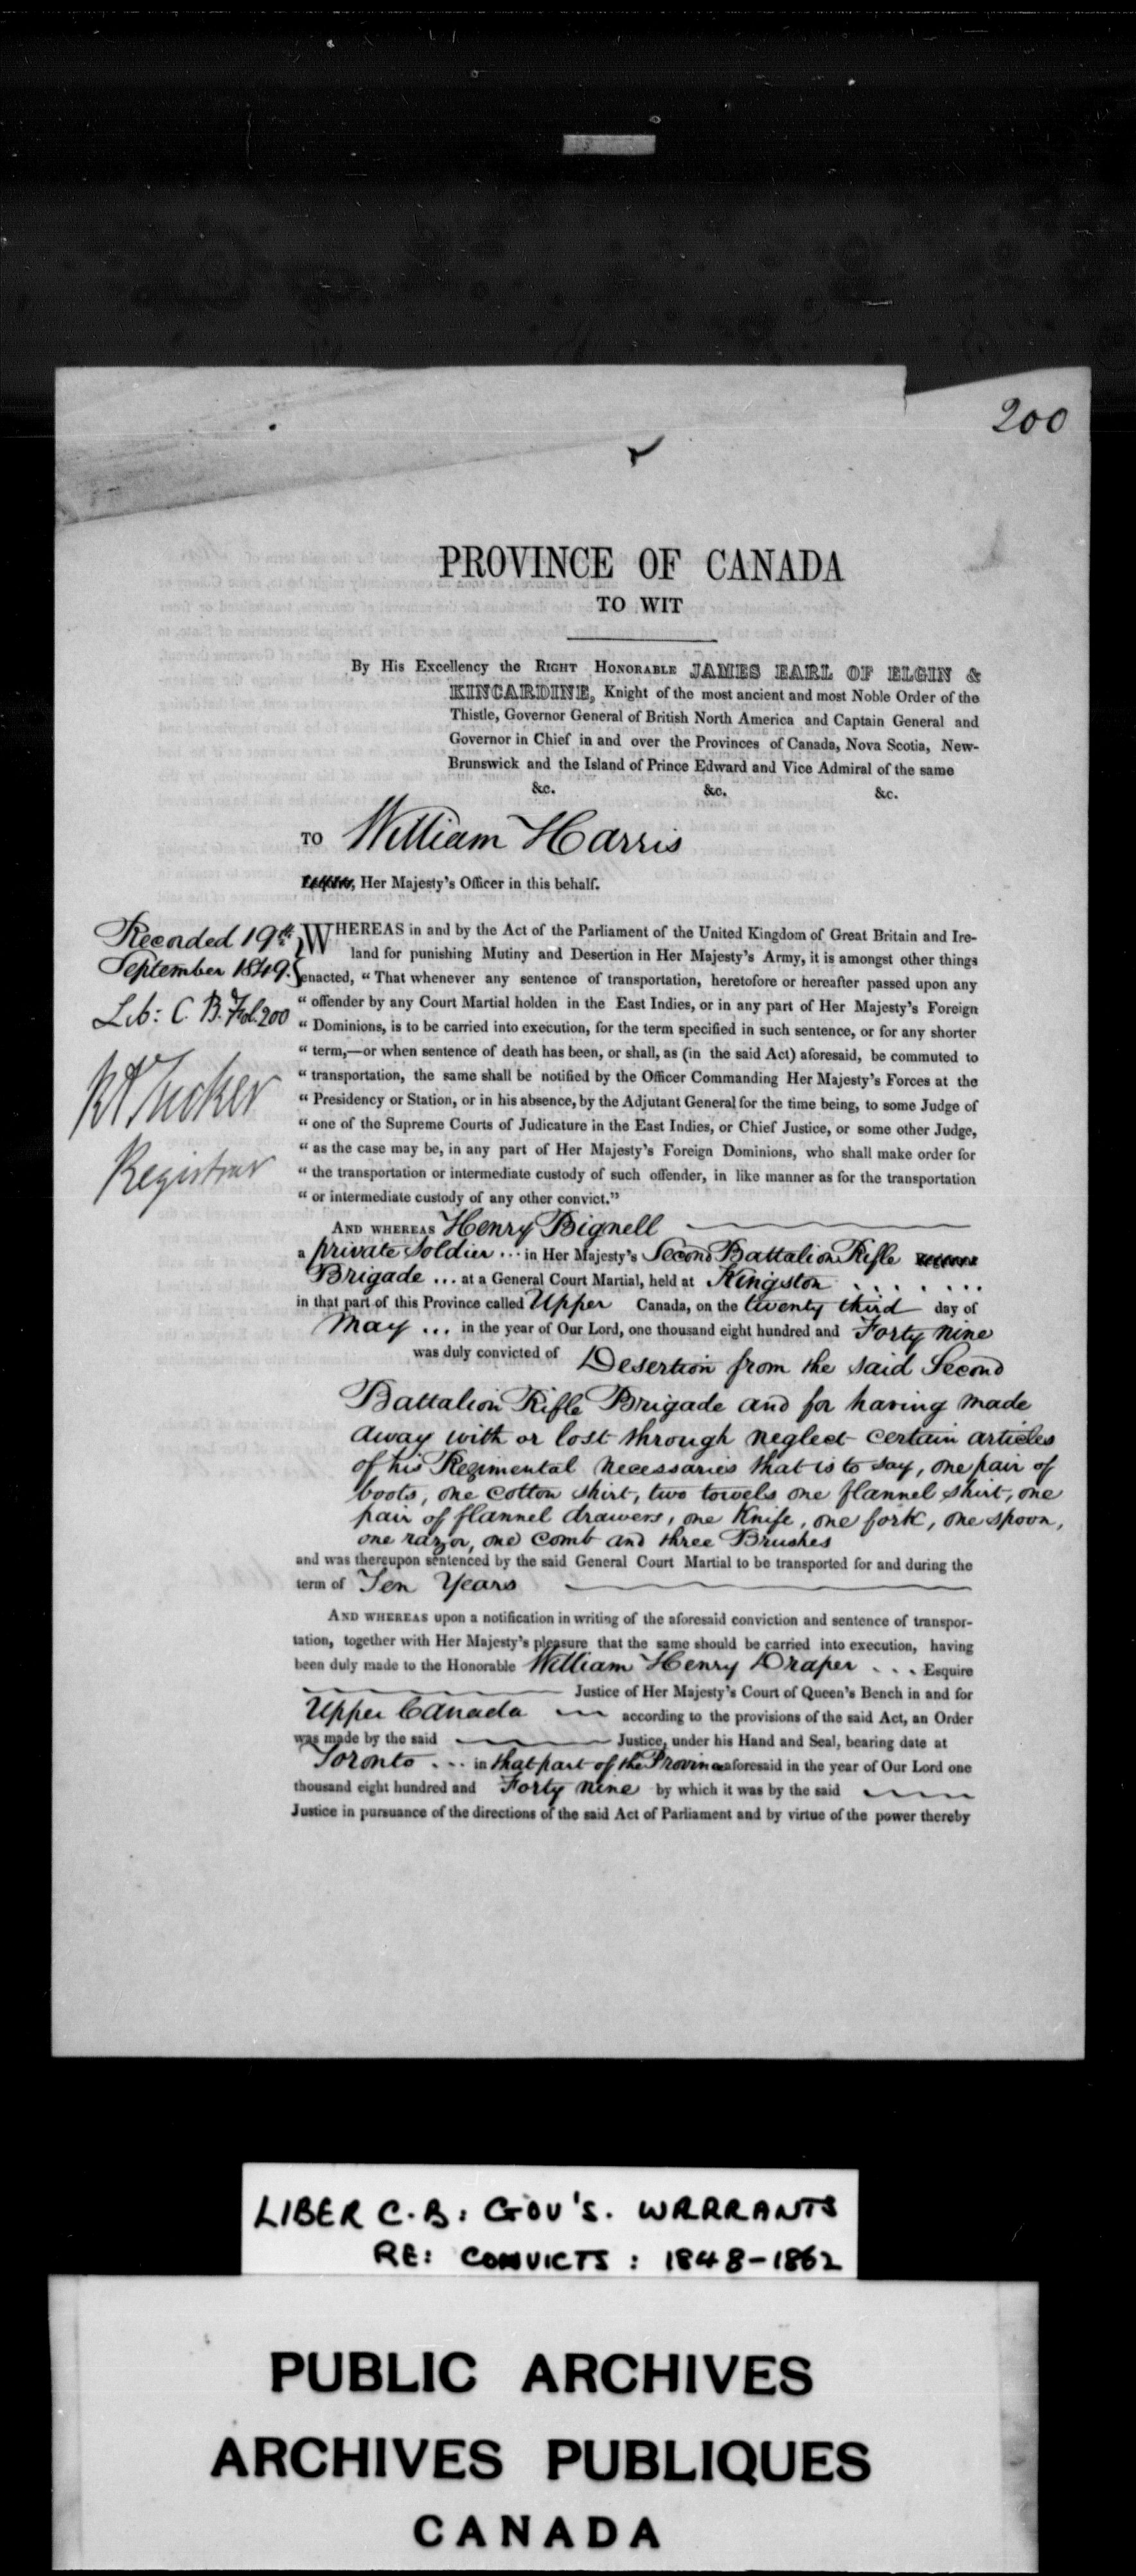 200
PROVINCE OF CANADA
TO WIT
By His Excellency the RIGHT HONORABLE JAMES EARL OF ELGIN &
KINCARDINE, Knight of the most ancient and most Noble Order of the
Thistle, Governor General of British North America and Captain General and
Governor in Chief in and over the Provinces of Canada, Nova Scotia, New-
Brunswick and the Island of Prince Edward and Vice Admiral of the same
&c. &c. &c.
TO William Harris
Her Majesty's Officer in this behalf.
Recorded 19th
September 1849.
Lib: C. B. Fol. 200
Tucker
Registrar
WHEREAS in and by the Act of the Parliament of the United Kingdom of Great Britain and Ire-
land for punishing Mutiny and Desertion in Her Majesty's Army, it is amongst other things
enacted, "That whenever any sentence of transportation, heretofore or hereafter passed upon any
"offender by any Court Martial holden in the East Indies, or in any part of Her Majesty's Foreign
"Dominions, is to be carried into execution, for the term specified in such sentence, or for any shorter
"term,—or when sentence of death has been, or shall, as (in the said Act) aforesaid, be commuted to
"transportation, the same shall be notified by the Officer Commanding Her Majesty's Forces at the
"Presidency or Station, or in his absence, by the Adjutant General for the time being, to some Judge of
"one of the Supreme Courts of Judicature in the East Indies, or Chief Justice, or some other Judge,
"as the case may be, in any part of Her Majesty's Foreign Dominions, who shall make order for
"the transportation or intermediate custody of such offender, in like manner as for the transportation
"or intermediate custody of any other convict."
AND WHEREAS Henry Bignell
a private Soldier ... in Her Majesty's Second Battalion Rifle
Brigade ... at a General Court Martial, held at Kingston . . . . . .
in that part of this Province called Upper Canada, on the twenty third day of
May ... in the year of Our Lord, one thousand eight hundred and Forty nine
was duly convicted of Desertion from the said Second
Battalion Rifle Brigade and for having made
away with or lost through neglect certain articles
of his Regimental necessaries that is to say, one pair of
boots, one cotton shirt, two towels one flannel shirt, one
pair of flannel drawers, one Knife, one fork, one spoon,
one razor, one comb and three Brushes
and was thereupon sentenced by the said General Court Martial to be transported for and during the
term of Ten Years
AND WHEREAS upon a notification in writing of the aforesaid conviction and sentence of transpor-
tation, together with Her Majesty's pleasure that the same should be carried into execution, having
been duly made to the Honorable William Henry Draper . . . Esquire
Justice of Her Majesty's Court of Queen's Bench in and for
Upper Canada according to the provisions of the said Act, an Order
was made by the said Justice, under his Hand and Seal, bearing date at
Toronto ... in that part of the Province aforesaid in the year of Our Lord one
thousand eight hundred and Forty nine by which it was by the said
Justice in pursuance of the directions of the said Act of Parliament and by virtue of the power thereby
LIBER C.B: GOV'S. WARRANTS
RE: CONVICTS: 1848-1862
PUBLIC ARCHIVES
ARCHIVES PUBLIQUES
CANADA